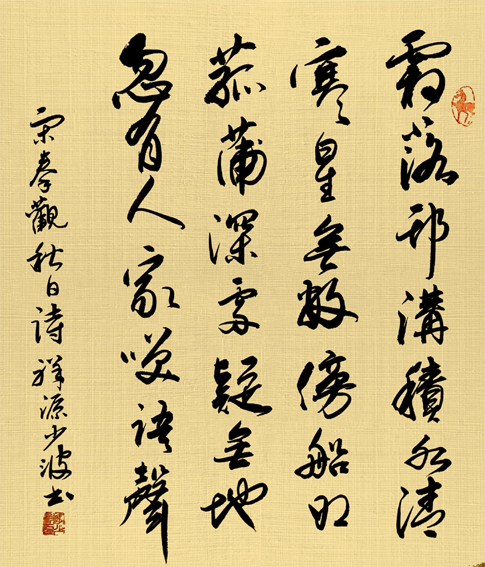 霜落邗溝積水清
寒星無數傍船明
菰蒲深處疑無地
忽有人家咲語聲
宋秦觀秋日詩 祥源少波书